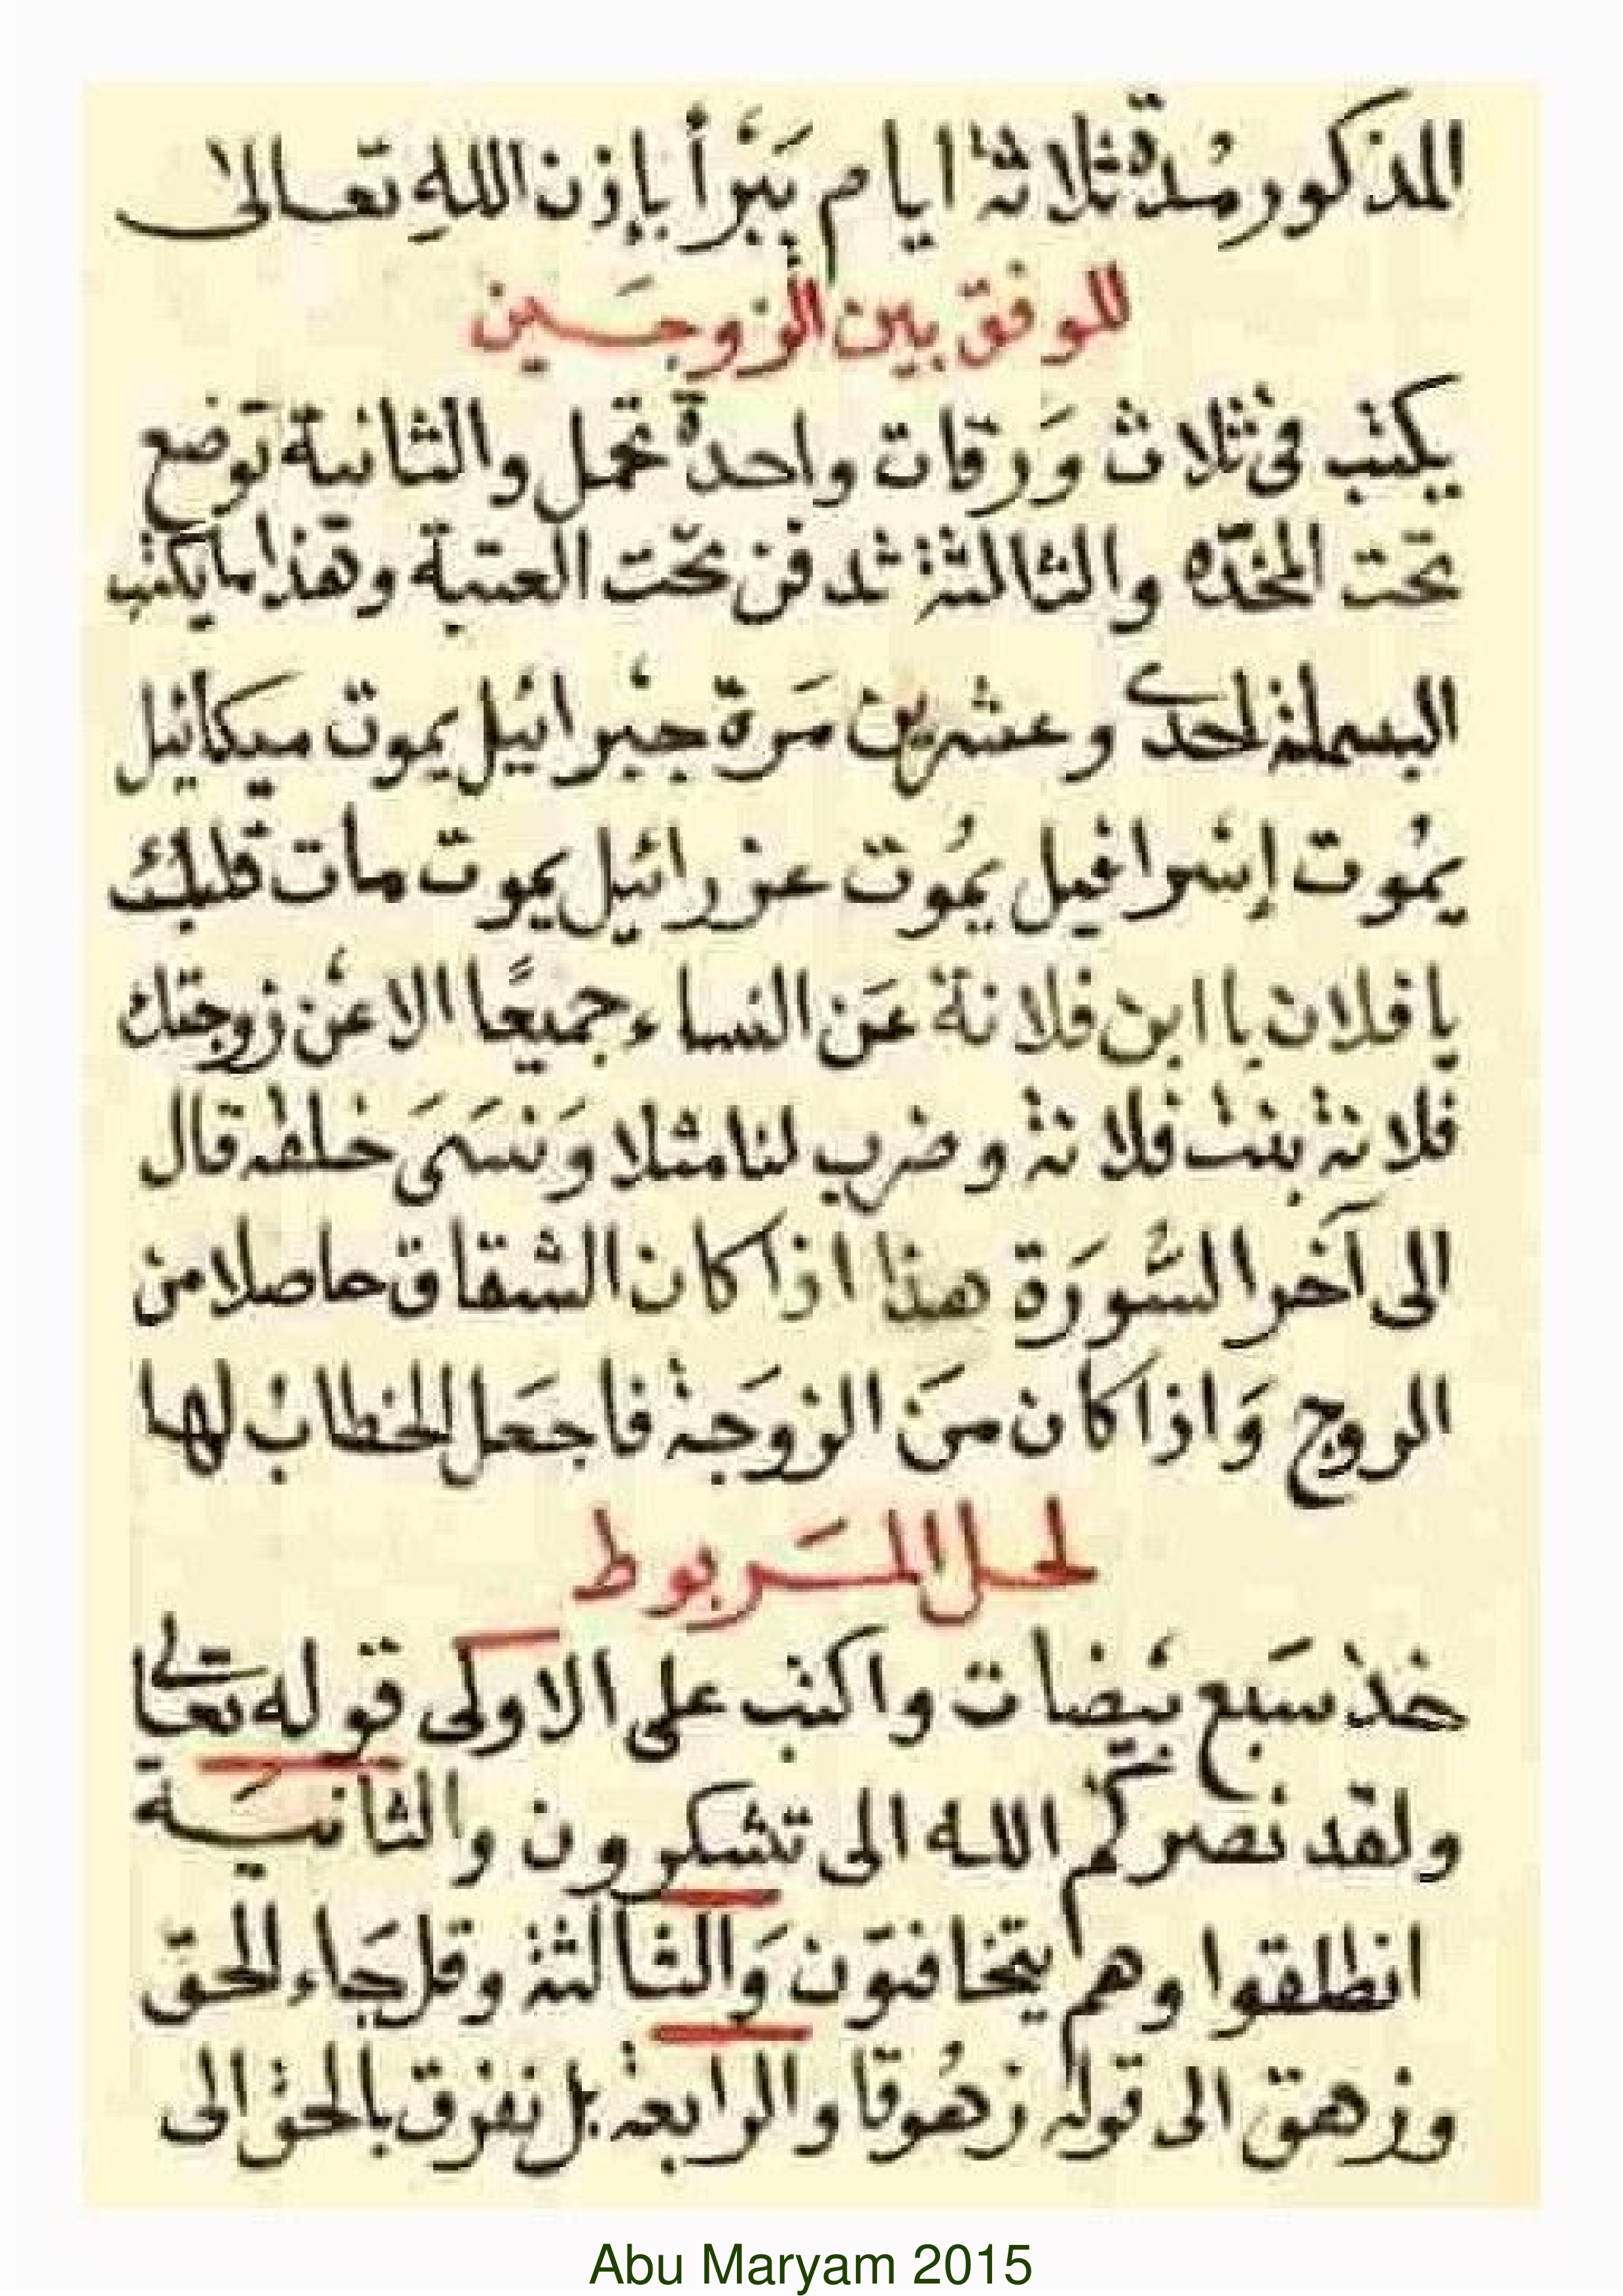 المذكور مُدة ثلاثة ايام يَبْرأ بإذن اللهِ تعالى
للوفق بين الزوجَين
يكتب فى ثلاث وَرَقات واحدة تحمل والثانية توضع
تحت المخدّه والثالثة تدفن تحت العتبة وهذا ما يكتب
البسملة احدى وعشرين مَرة جبْرائيل يموت ميكائيل
يمُوت إسْرافيل يمُوت عزرائيل يموت مات قلبك
يا فلان يا ابن فلانة عَن النساء جميعًا الا عنْ زوجتك
فلانة بنت فلانة وضرب لنا مثلا وَنَسَىَ خلقه قال
الى آخر السُّورَة هذا اذا كان الشقاق حاصلا من
الزوج وَاذا كان مَن الزوَجة فاجعَل الخطابْ لها
لحل المَربوط
خذ سَبع بيْضات واكتب على الاولى قوله تعالى
ولقد نصركم الله الى تشكرون والثانيَة
انطلقوا وهم يتخافتون وَالثالثة وقل جَاء الحق
وزهق الى قوله زهُوقا والرابعة بل نقذف بالحق الى
Abu Maryam 2015